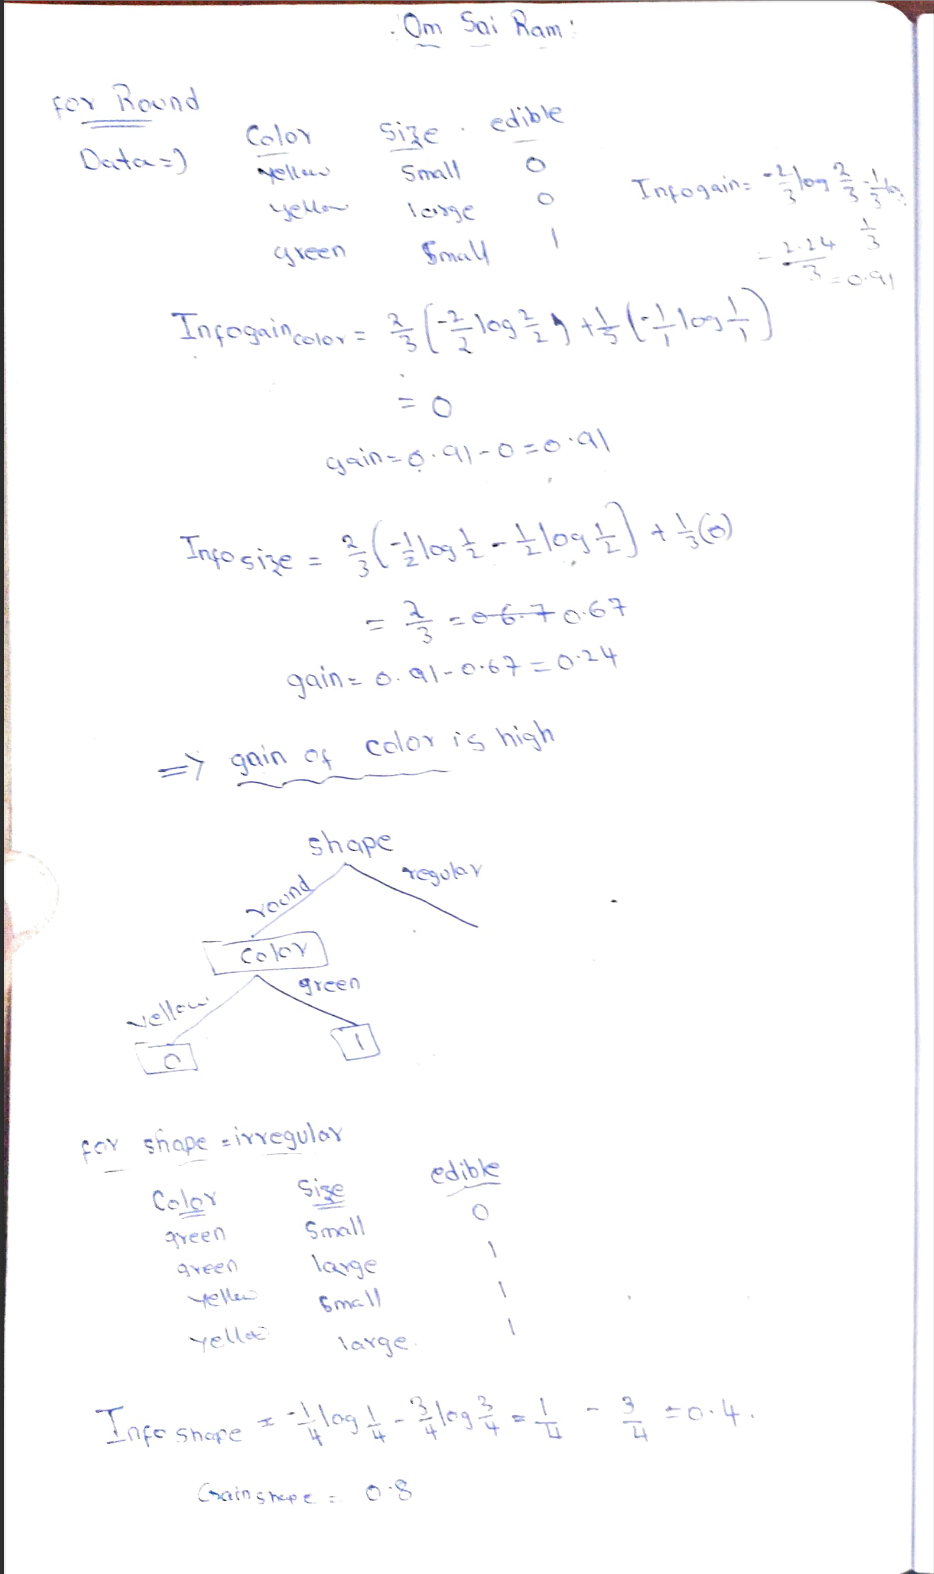 . Om Sai Ram :
for Round
Data =) Color Size . edible
yellow Small 0
yellow large 0
green Small 1
Infogain = -2/3 log 2/3 - 1/3 log 1/3
= 2.24/3 = 0.91
Infogain color = 2/3 (-2/2 log 2/2) + 1/3 (-1/1 log 1/1)
= 0
gain = 0.91 - 0 = 0.91
Info size = 2/3 (-1/2 log 1/2 - 1/2 log 1/2) + 1/3 (0)
= 2/3 = 0.67
gain = 0.91 - 0.67 = 0.24
=> gain of color is high
shape
round regular
Color
yellow green
0 1
for shape = irregular
Color Size edible
green Small 0
green large 1
yellow Small 1
yellow large 1
Info shape = -1/4 log 1/4 - 3/4 log 3/4 = 1/4 - 3/4 = 0.4.
Gain shape = 0.8